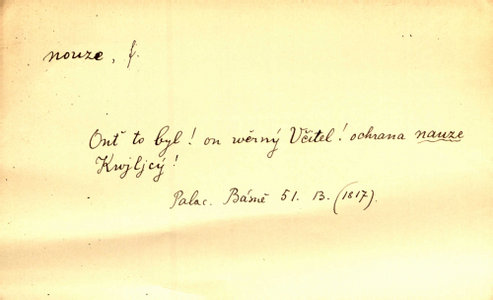 nouze, f.
Onť to byl! on wěrný Včitel! ochrana nauze
Kwjljcý!
Palac. Básně 51. B. (1817).